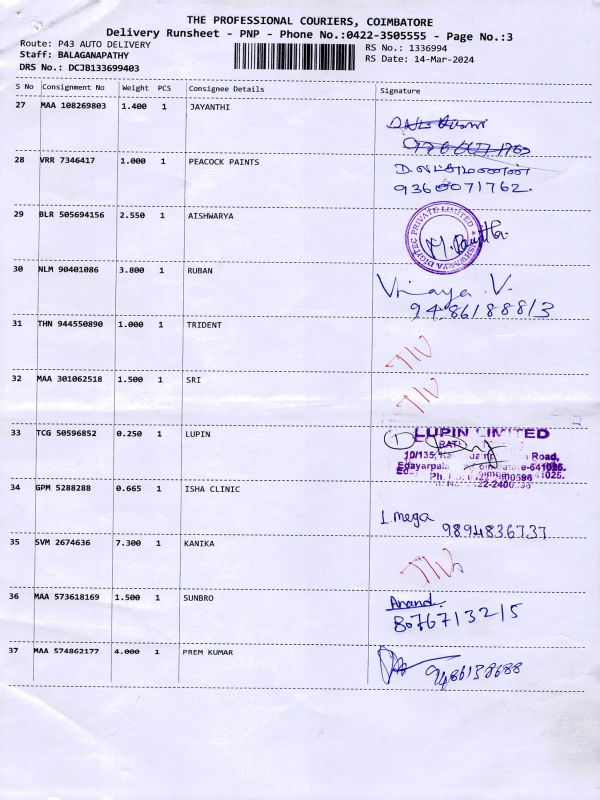 THE PROFESSIONAL COURIERS, COIMBATORE
Delivery Runsheet - PNP - Phone No.:0422-3505555 - Page No.:3
Route: P43 AUTO DELIVERY
RS No.: 1336994
Staff: BALAGANAPATHY
RS Date: 14-Mar-2024
DRS No.: DCJB133699403
S No Consignment No Weight PCS Consignee Details Signature
27 MAA 108269803 1.400 1 JAYANTHI
28 VRR 7346417 1.000 1 PEACOCK PAINTS
9360071762.
29 BLR 505694156 2.550 1 AISHWARYA
AISHWARYA DIGITEC PRIVATE LIMITED
30 NLM 90401086 3.800 1 RUBAN
Vinaya .V.
9486188813
31 THN 944550890 1.000 1 TRIDENT
32 MAA 301062518 1.500 1 SRI
33 TCG 50596852 0.250 1 LUPIN
LUPIN LIMITED
10/135, Road,
Edayarpala
34 GPM 5288288 0.665 1 ISHA CLINIC
mega
9894836737
35 SVM 2674636 7.300 1 KANIKA
36 MAA 573618169 1.500 1 SUNBRO
Anand.
8076713215
37 MAA 574862177 4.000 1 PREM KUMAR
9486138688